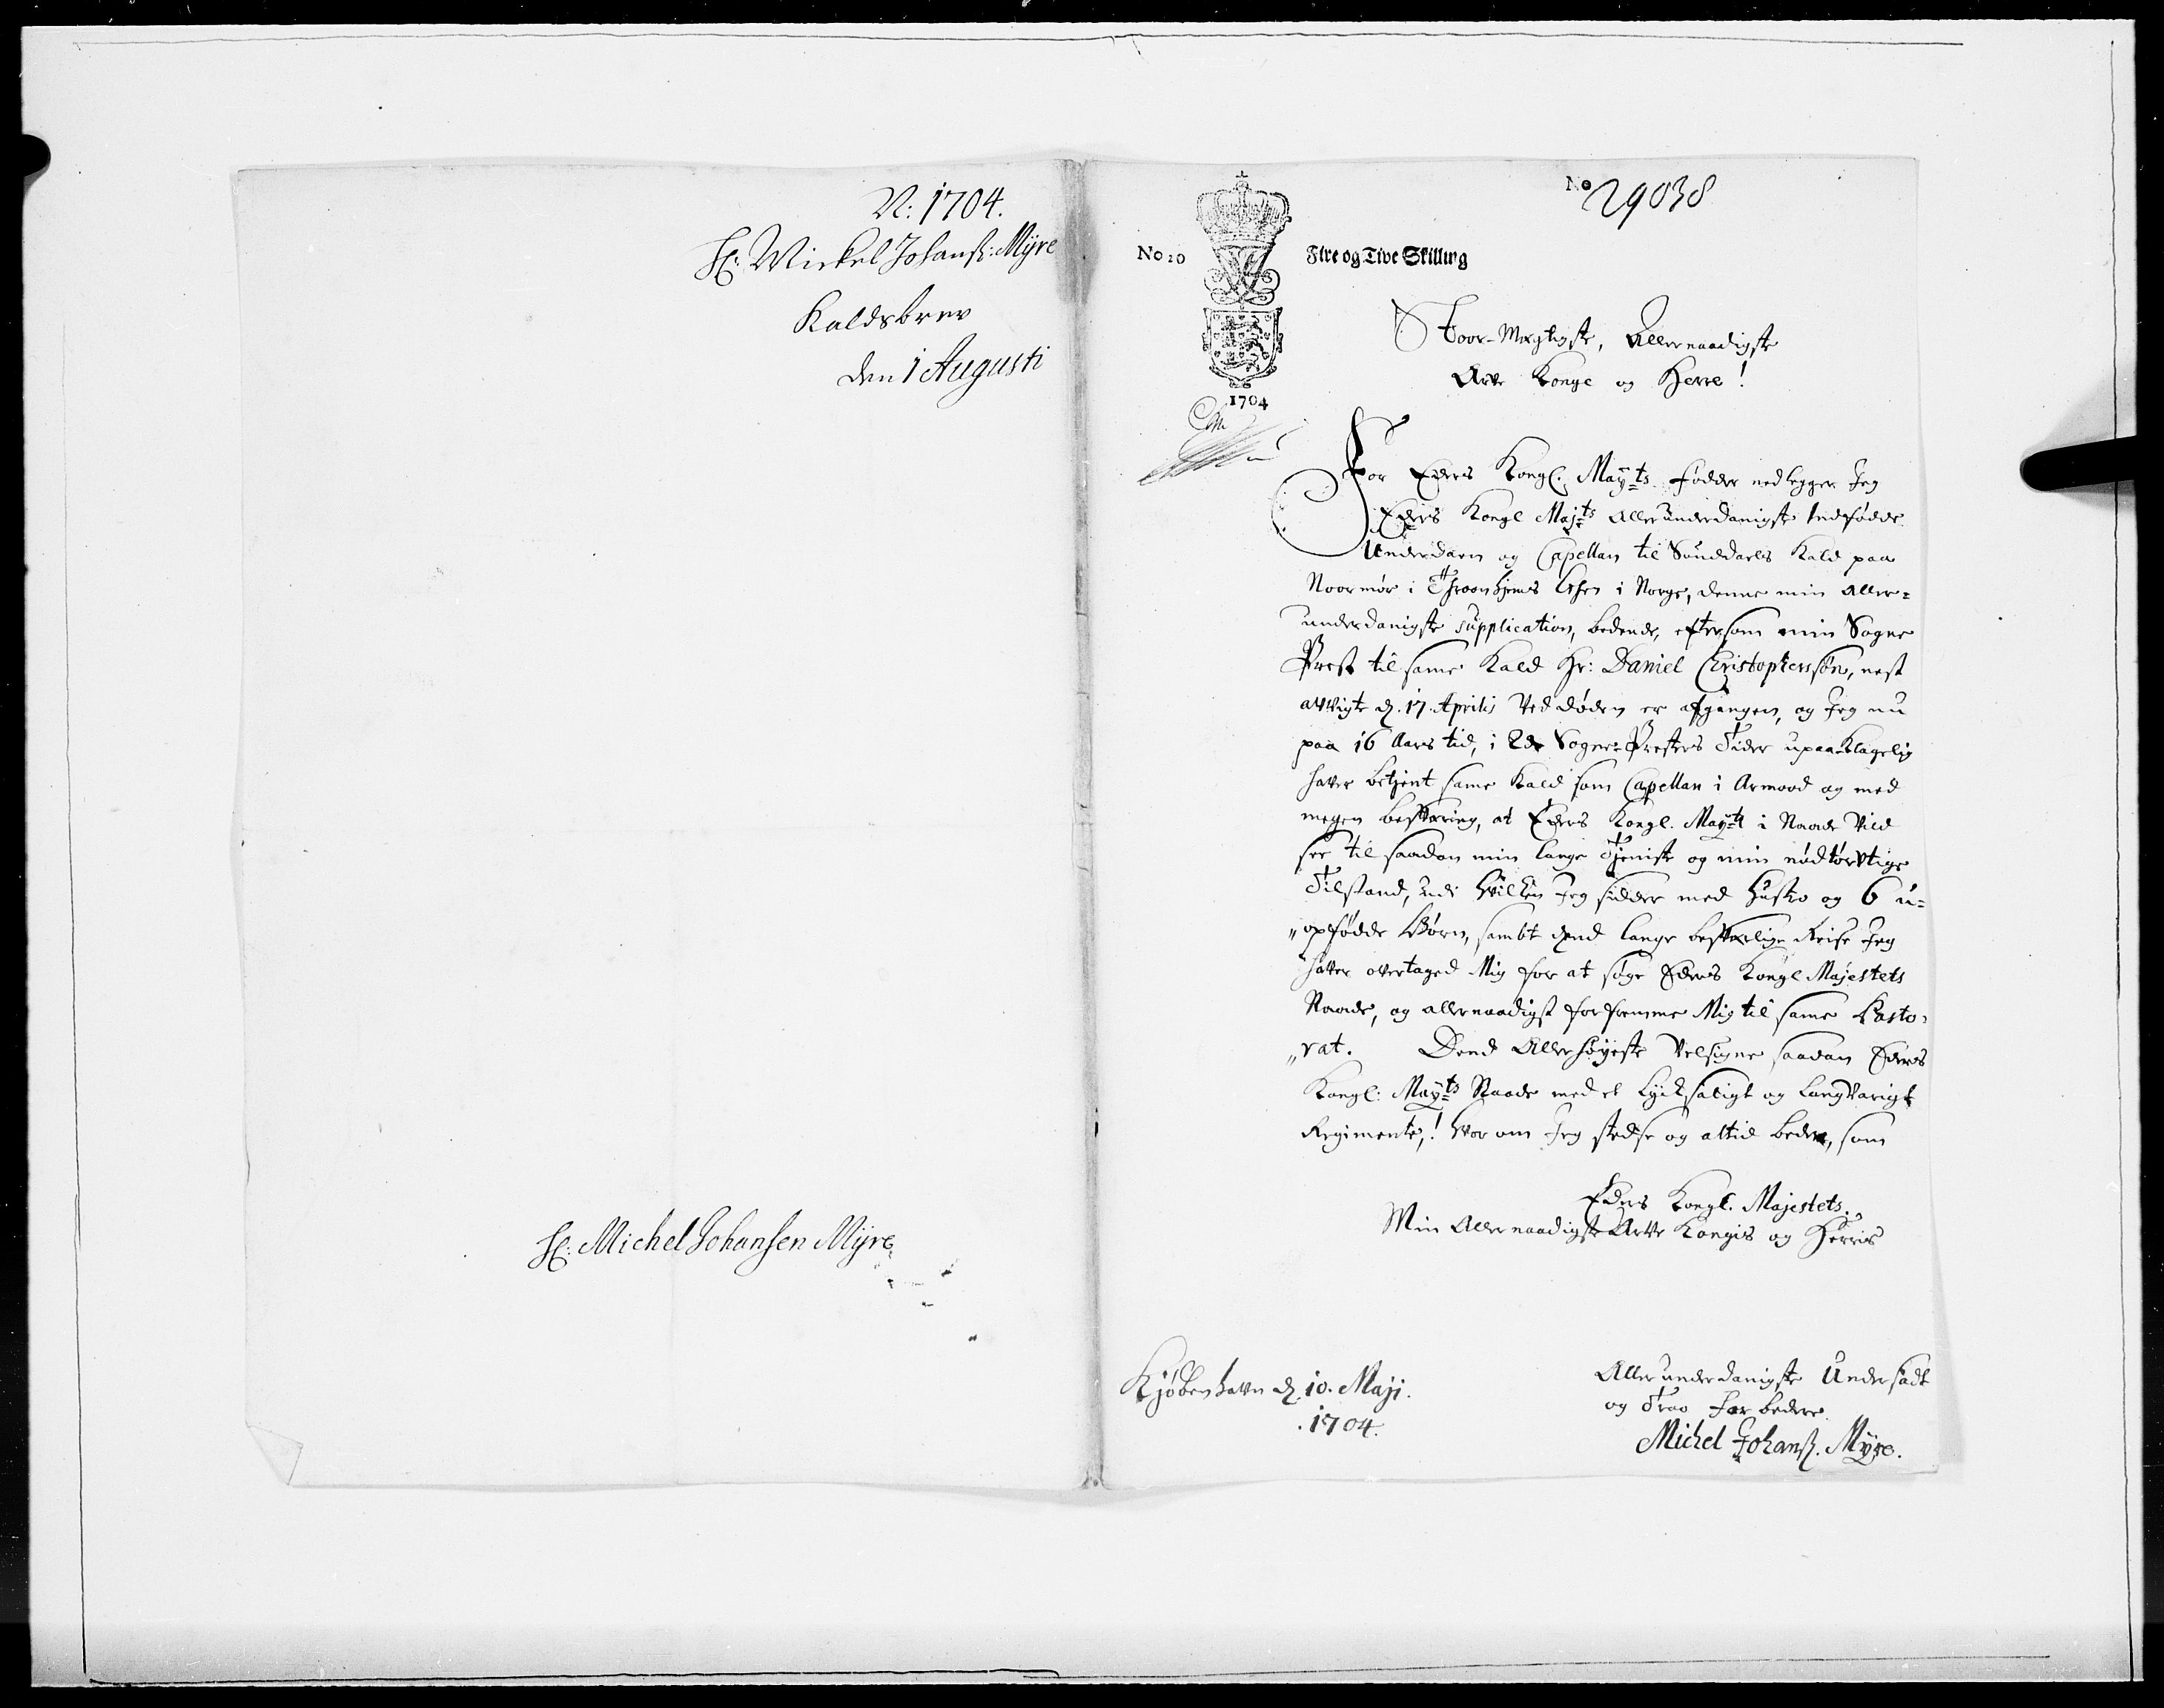 N: 1704.
Hr: Mickel Johansz: Myre
Kaldsbrev
den 1 Augusti
Hr: Michel Johansen Myre
No 29038
No 20
Fire og Tive Skilling
1704
Stoor-Mægtigste, Allernaadigste
Arve Konge og Herre!
For Eders Kongl: Mayts. fødder nedlegger Jeg
Eders Kongl Majts Allerunderdanigste Indfødde
Underdaan og Capellan til Sunddaels Kald paa
Noormør i Throonhjems Lehn i Norge, denne min Aller=
underdanigste supplication, bedende, eftersom min Sogne
Prest til same Kald Hr: Daniel Christopherssøn, nest
afvigte d. 17. Aprilis Ved døden er afgangen, og Jeg nu
paa 16 Aars tid, i 2de Sogne-Presters Tider upaaklagelig
haver betjent same Kald som Capellan i Armood og med
megen besværing, at Eders Kongl. Mayts i Naade Vild
see til saadan min lange Tjeniste og min nødtørvtige
Tilstand, udi hvilken Jeg sidder med Hustro og 6 u=
"opfødde Børn, sambt dend lange besværlige Reise Jeg
haver overtaged Mig for at søge Eders Kongl Majestets
Naade, og allernaadigst forfremme Mig til same Pasto=
"rat. Dend Allerhøyeste Velsigne saadan Eders
Kongl: Mayts Naade med et Lyksaligt og Langvarigt
Regimente,! Hvorom Jeg stedse og altid beder, som
Eders Kongl. Majestets.
Min Allernaadigste Arve Kongis og Herris
Kjøbenhavn d. 10. Maji.
1704.
Allerunderdanigste Undersadt
og Troo forbedere
Michel Johansz. Myre.